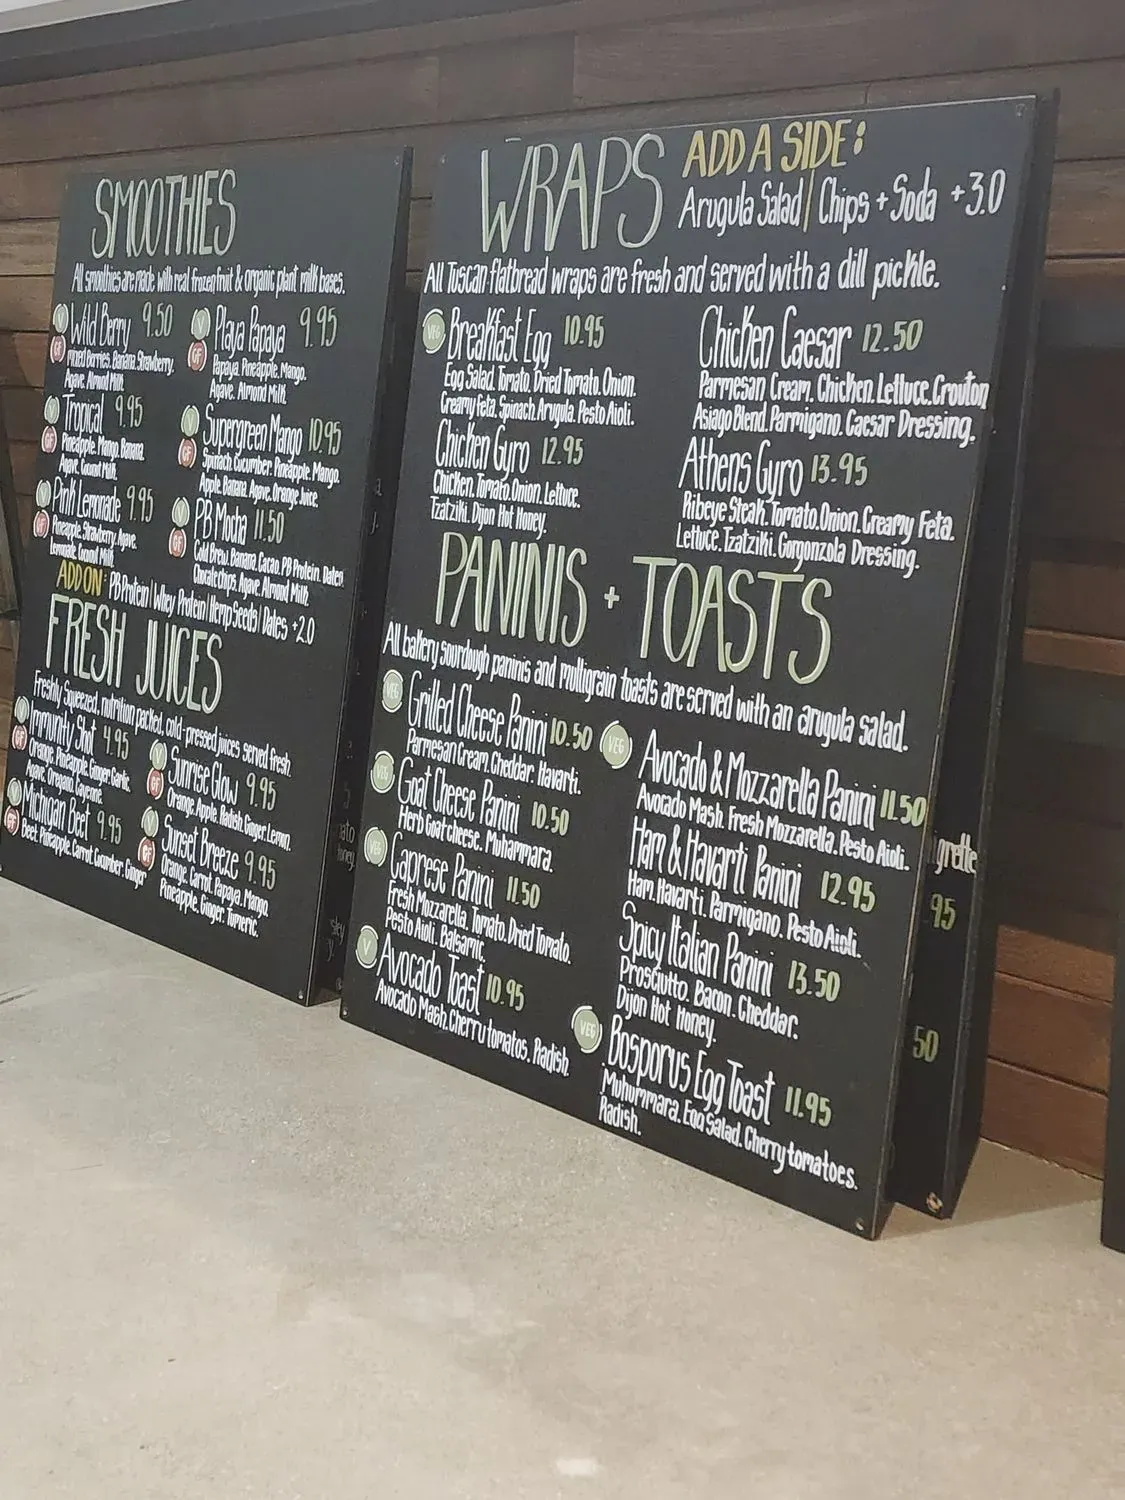 SMOOTHIES
All smoothies are made with real frozen fruit & organic plant milk bases.
V
GF
Wild Berry 9.50
Mixed Berries. Banana. Strawberry.
Agave. Almond Milk.
V
GF
Playa Papaya 9.95
Papaya. Pineapple. Mango.
Agave. Almond Milk.
V
GF
Tropical 9.95
Pineapple. Mango. Banana.
Agave. Coconut Milk.
V
GF
Supergreen Mango 10.95
Spinach. Cucumber. Pineapple. Mango.
Apple. Banana. Agave. Orange Juice.
V
GF
Pink Lemonade 9.95
Pineapple. Strawberry. Agave.
Lemonade. Coconut Milk.
V
GF
PB Mocha 11.50
Cold Brew. Banana. Cacao. PB Protein. Dates.
Chocate chips. Agave. Almond Milk.
ADD ON: PB Protein | Whey Protein | Hemp Seeds | Dates +2.0
FRESH JUICES
Freshly Squeezed, nutrition packed, cold-pressed juices served fresh.
V
GF
Immunity Shot 4.95
Orange. Pineapple. Ginger. Garlic.
Agave. Oregano. Cayenne.
V
GF
Sunrise Glow 9.95
Orange. Apple. Radish. Ginger. Lemon.
V
GF
Michigan Beet 9.95
Beet. Pineapple. Carrot. Cucumber. Ginger
V
GF
Sunset Breeze 9.95
Orange. Carrot. Papaya. Mango.
Pineapple. Ginger. Turmeric.
WRAPS
ADD A SIDE:
Arugula Salad | Chips + Soda +3.0
All Tuscan flatbread wraps are fresh and served with a dill pickle.
VEG
Breakfast Egg 10.95
Egg Salad. Tomato. Dried Tomato. Onion.
Creamy Feta. Spinach. Arugula. Pesto Aioli.
Chicken Caesar 12.50
Parmesan Cream. Chicken. Lettuce. Crouton
Asiago Blend. Parmigano. Caesar Dressing.
Chicken Gyro 12.95
Chicken. Tomato. Onion. Lettuce.
Tzatziki. Dijon Hot Honey.
Athens Gyro 13.95
Ribeye Steak. Tomato. Onion. Creamy Feta.
Lettuce. Tzatziki. Gorgonzola Dressing.
PANINIS + TOASTS
All bakery sourdough paninis and multigrain toasts are served with an arugula salad.
VEG
Grilled Cheese Panini 10.50
Parmesan Cream. Cheddar. Havarti.
VEG
Goat Cheese Panini 10.50
Herb Goat cheese. Muhammara.
VEG
Caprese Panini 11.50
Fresh Mozzarella. Tomato. Dried Tomato.
Pesto Aioli. Balsamic.
V
Avocado Toast 10.95
Avocado Mash. Cherry tomatos. Radish.
VEG
Avocado & Mozzarella Panini 11.50
Avocado Mash. Fresh Mozzarella. Pesto Aioli.
Ham & Havarti Panini 12.95
Ham. Havarti. Parmigano. Pesto Aioli.
Spicy Italian Panini 13.50
Prosciutto. Bacon. Cheddar.
Dijon Hot Honey.
VEG
Bosporus Egg Toast 11.95
Muhummara. Egg Salad. Cherry tomatoes.
Radish.
grette
95
50